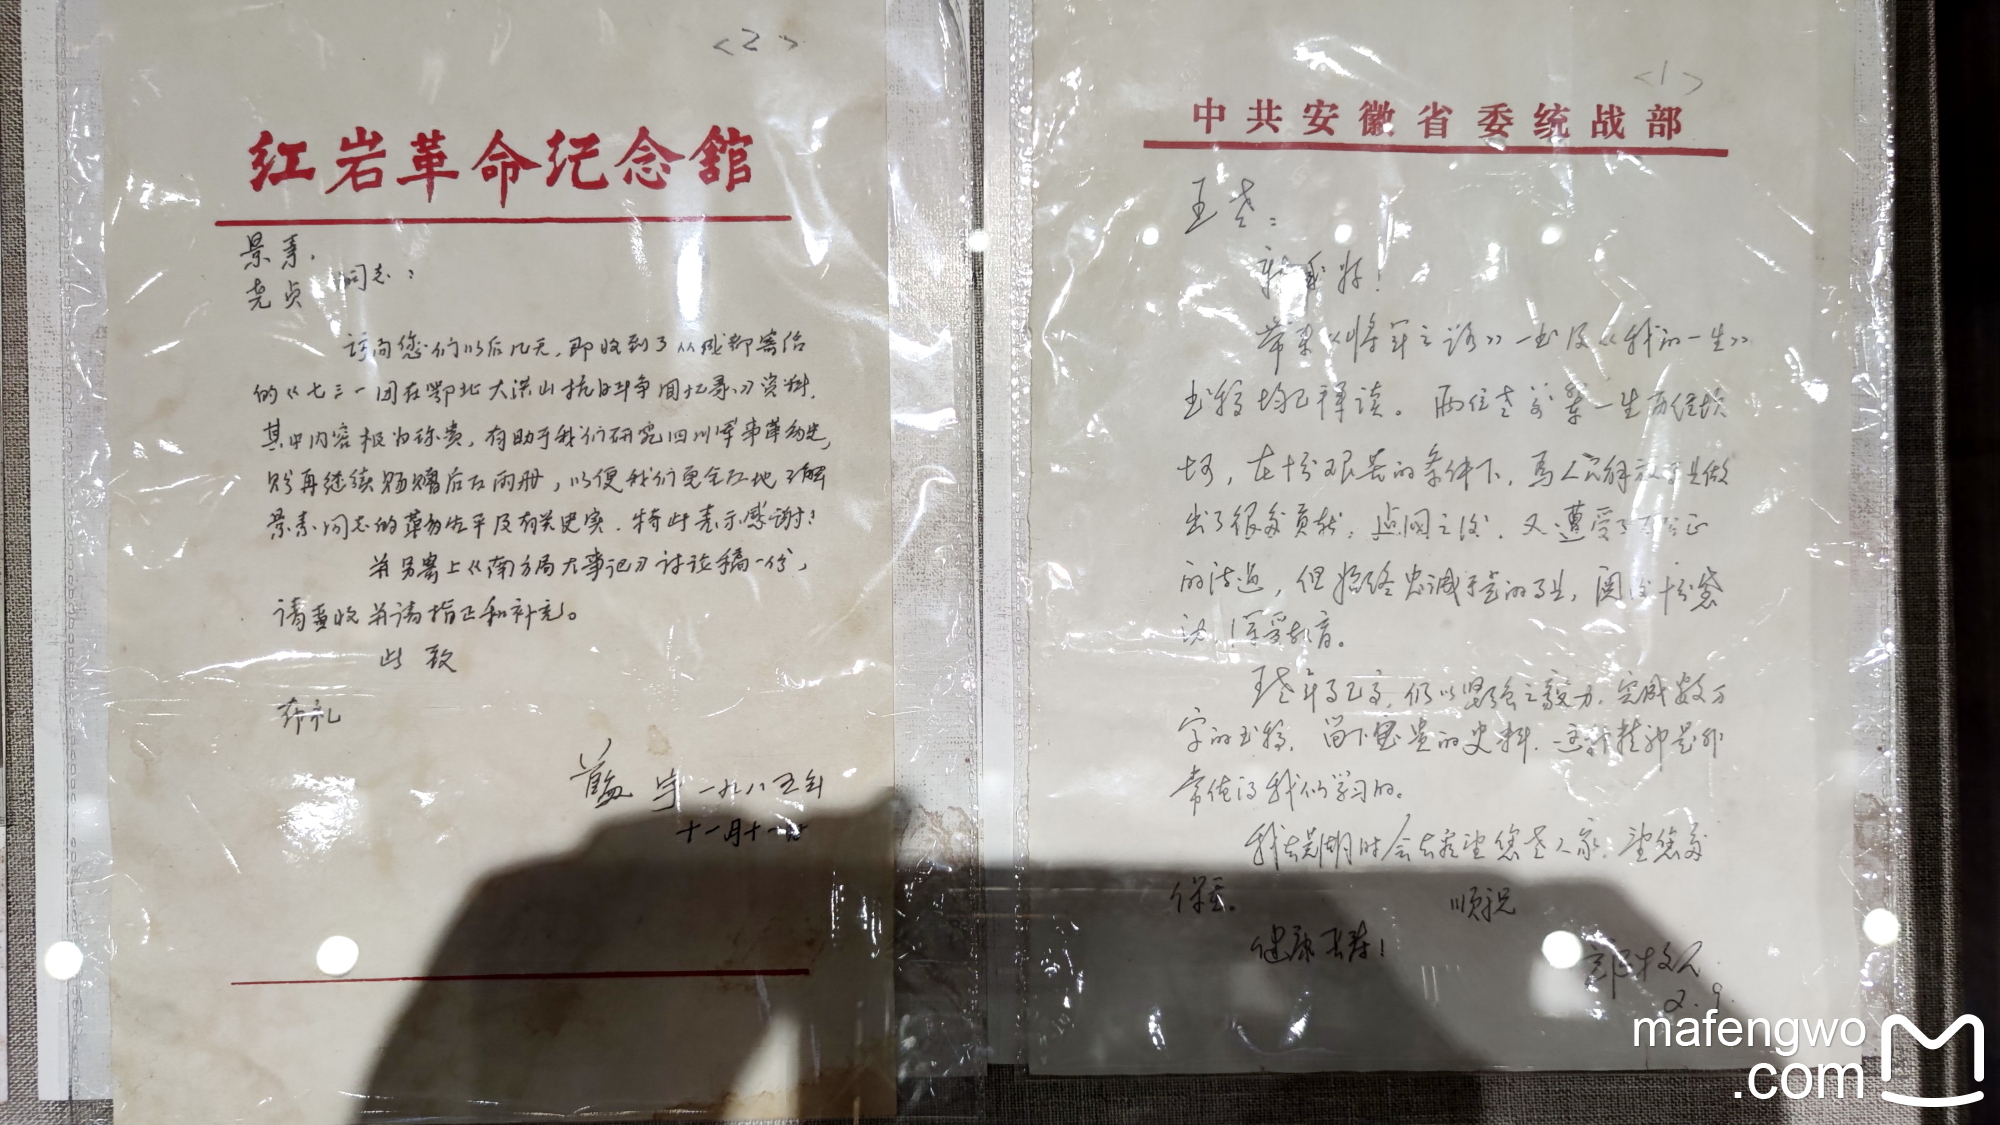 <2>
红岩革命纪念馆
景素、
尧贞 同志：
访问您们以后几天，即收到了从成都寄给
的《七三一团在鄂北大洪山抗日斗争回忆录》资料，
其中内容极为珍贵，有助于我们研究四川军事革命史，
盼再继续赐赠后左两册，以便我们更全面地了解
景素同志的革命生平及有关史实，特此表示感谢！
并另寄上《南方局大事记》讨论稿一份，
请查收并请指正和补充。
此致
敬礼
一九八五年
十一月十一日
<1>
中共安徽省委统战部
王老：
新年好！
带来《将军之路》一书及《我的一生》
书稿均已拜读。两位老前辈一生历经坎
坷，在十分艰苦的条件下，为人民解放事业做
出了很多贡献，建国之后，又遭受了不公正
的待遇，但始终忠诚于党的事业，阅后十分感
动，深受教育。
王老年事已高，仍以坚强之毅力，完成数万
字的书稿，留下宝贵的史料，这种精神是非
常值得我们学习的。
我去芜湖时会去看望您老人家，望您多
保重。 顺祝
健康长寿！
2.9.
mafengwo
.com